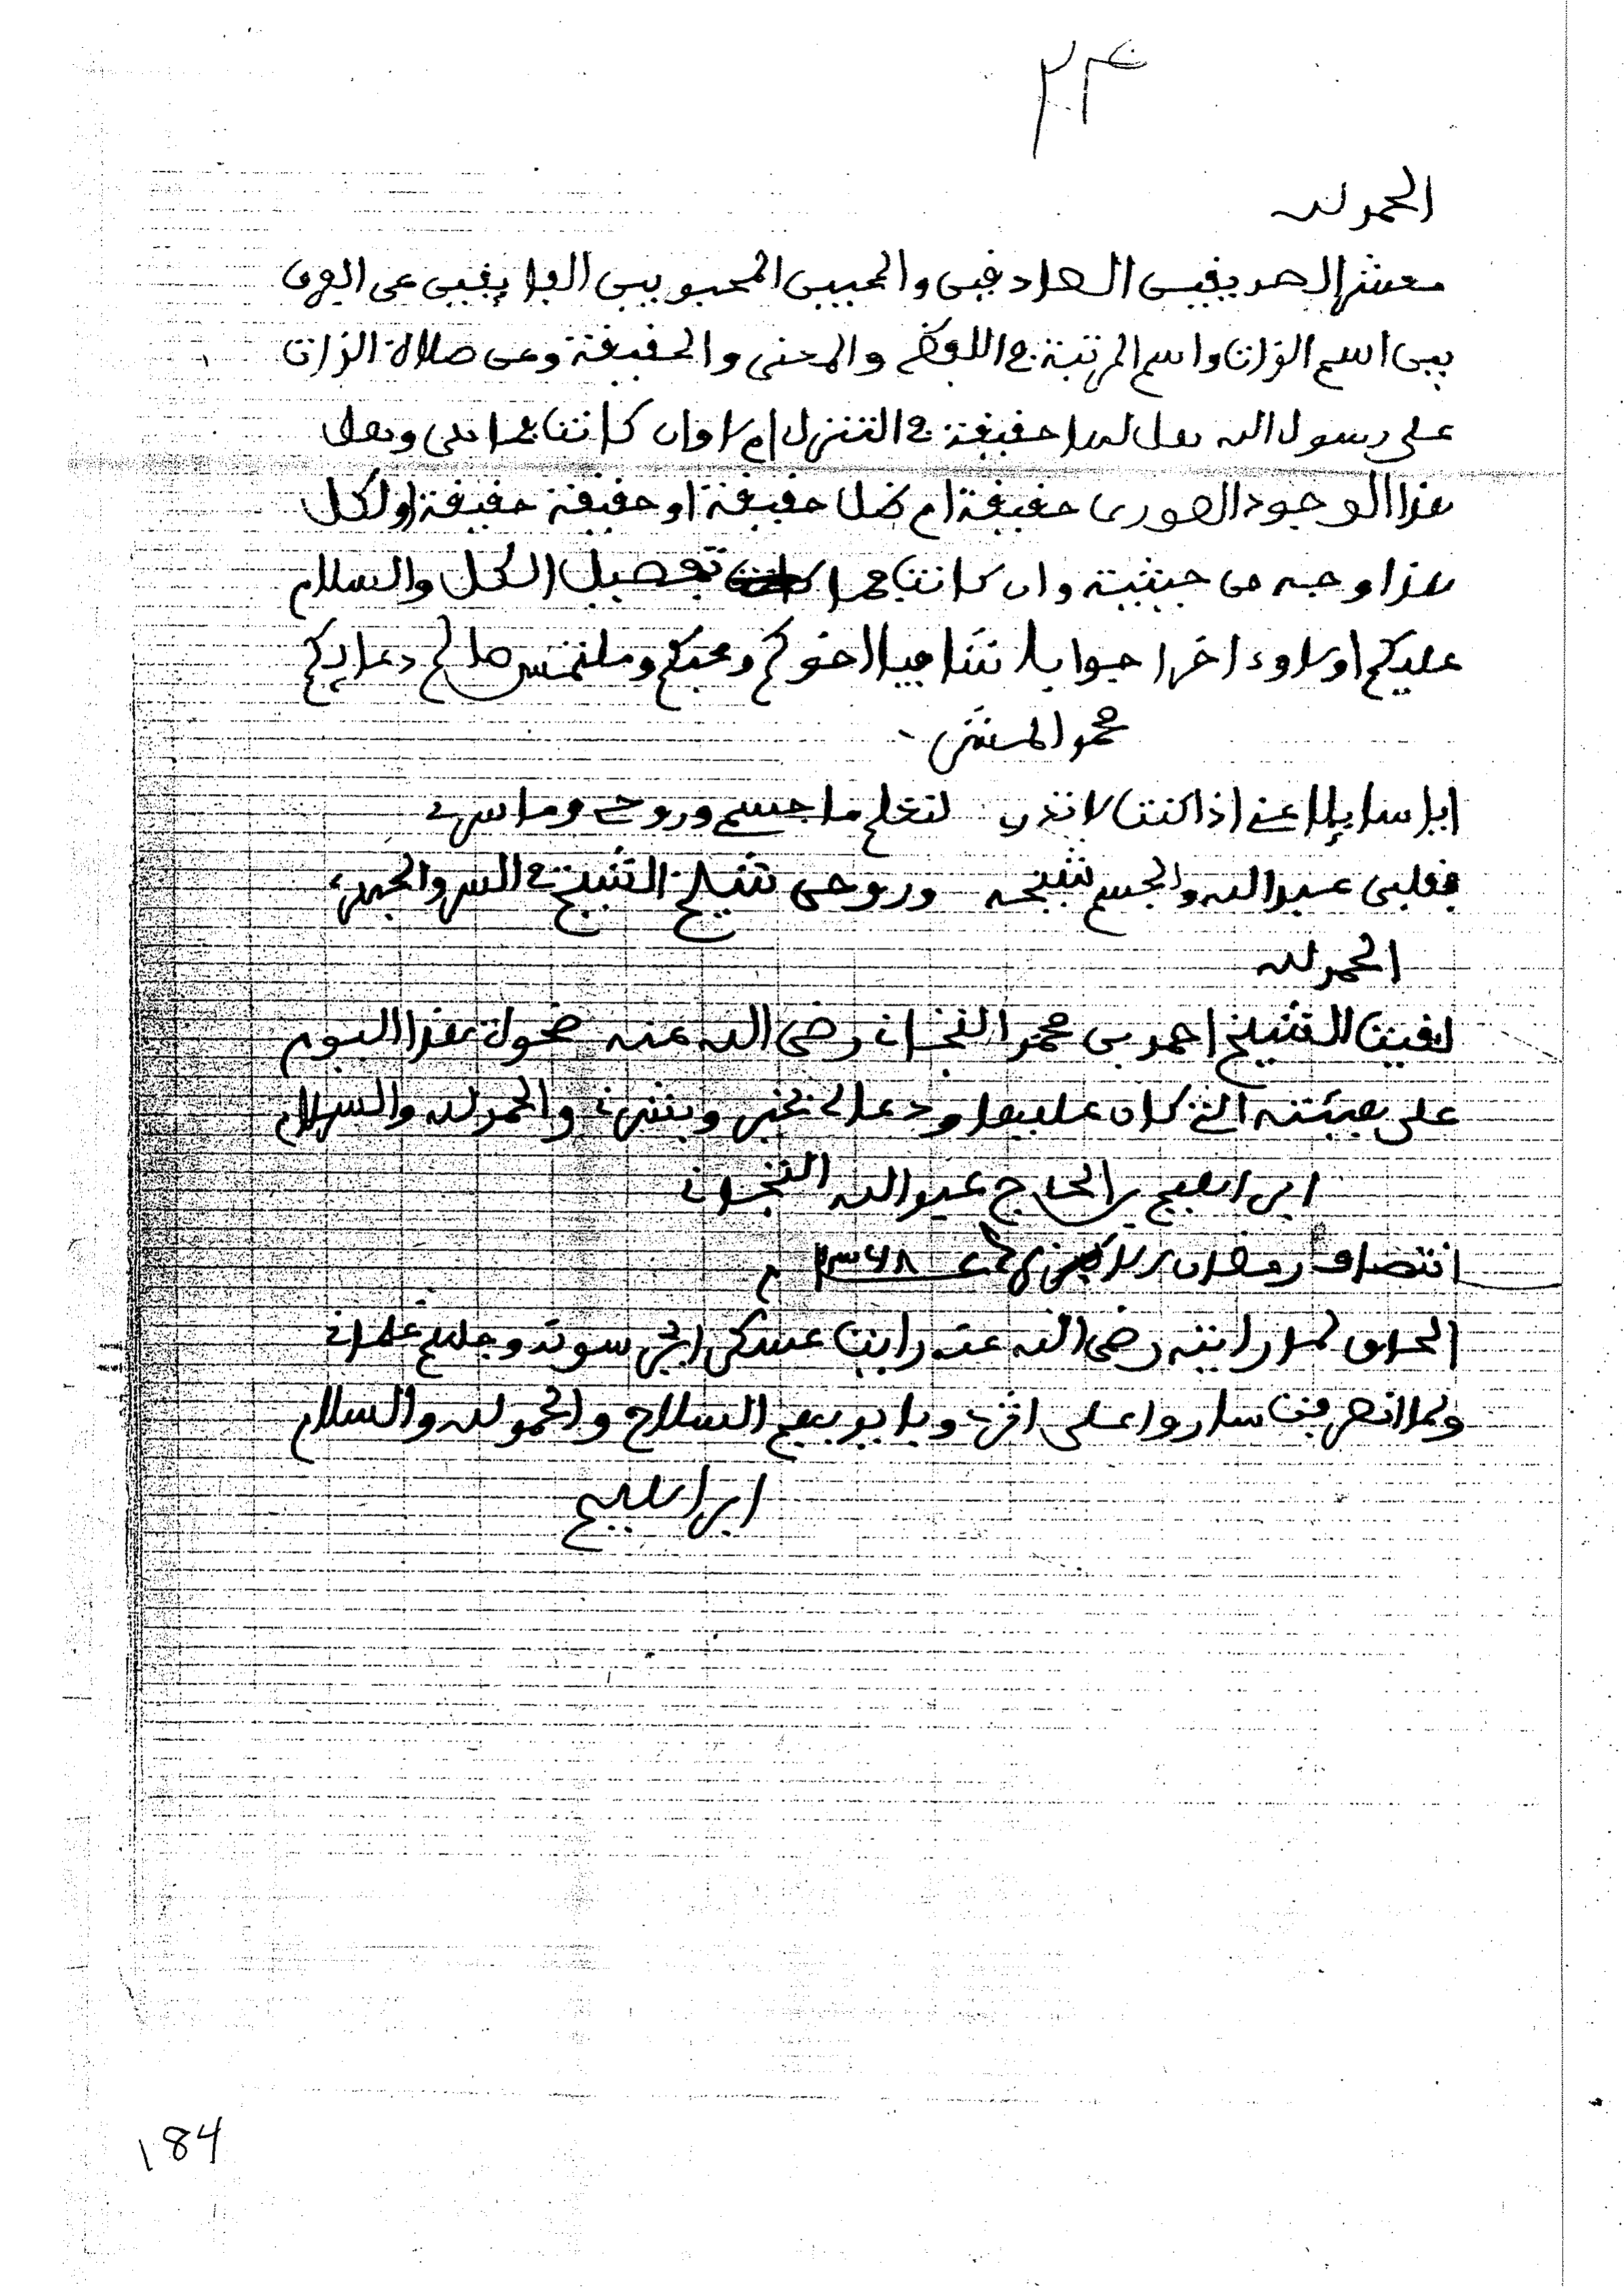 ٢٤
الحمد لله
معشر الصديقين الصادقين والمحبين المحبوبين الفايقين عن الفرق
بين اسم الذات واسم المرتبة في اللفظ والمعنى والحقيقة وعن صلاة الذات
على رسول الله هل لها حقيقة في التنزل ام لا وان كانت فما هي وهل
هذا الوجود الصوري حقيقة ام ظل حقيقة او حقيقة حقيقة او لكل
هذا وجه من حيثيته وان كانت فما تفصيل الكل والسلام
عليكم اولا وءاخرا جوابا شافيا اخوكم ومحبكم وملتمس صالح دعايكم
محمد المشري
ايا سايلا عني اذا كنت لا تدر لتعلم ما جسمي وروحي وما سري
فقلبي عبد الله والجسم شيخه وروحي شيخ الشيخ في السر والجهر
الحمد لله
لقيت الشيخ احمد بن محمد التجاني رضي الله عنه ضحوة هذا اليوم
على هيئته التي كان عليها ودعا لي بخير وبشرني والحمد لله والسلام
ابراهيم بن الحاج عبد الله التجاني
انتصاف رمضان عـ ١٣٦٨ م
الحاق لما رايته رضي الله عنه رايت عسكرا يجر سوقه وجلهم غلمان
ولما انصرفت ساروا على اثري وبايديهم السلاح والحمد لله والسلام
ابراهيم
184